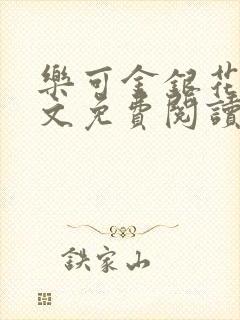 樂可金銀花
文免費閱讀
鉄家山